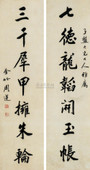 七德龍韜開玉帳
三千犀甲擁朱輪
周蓮